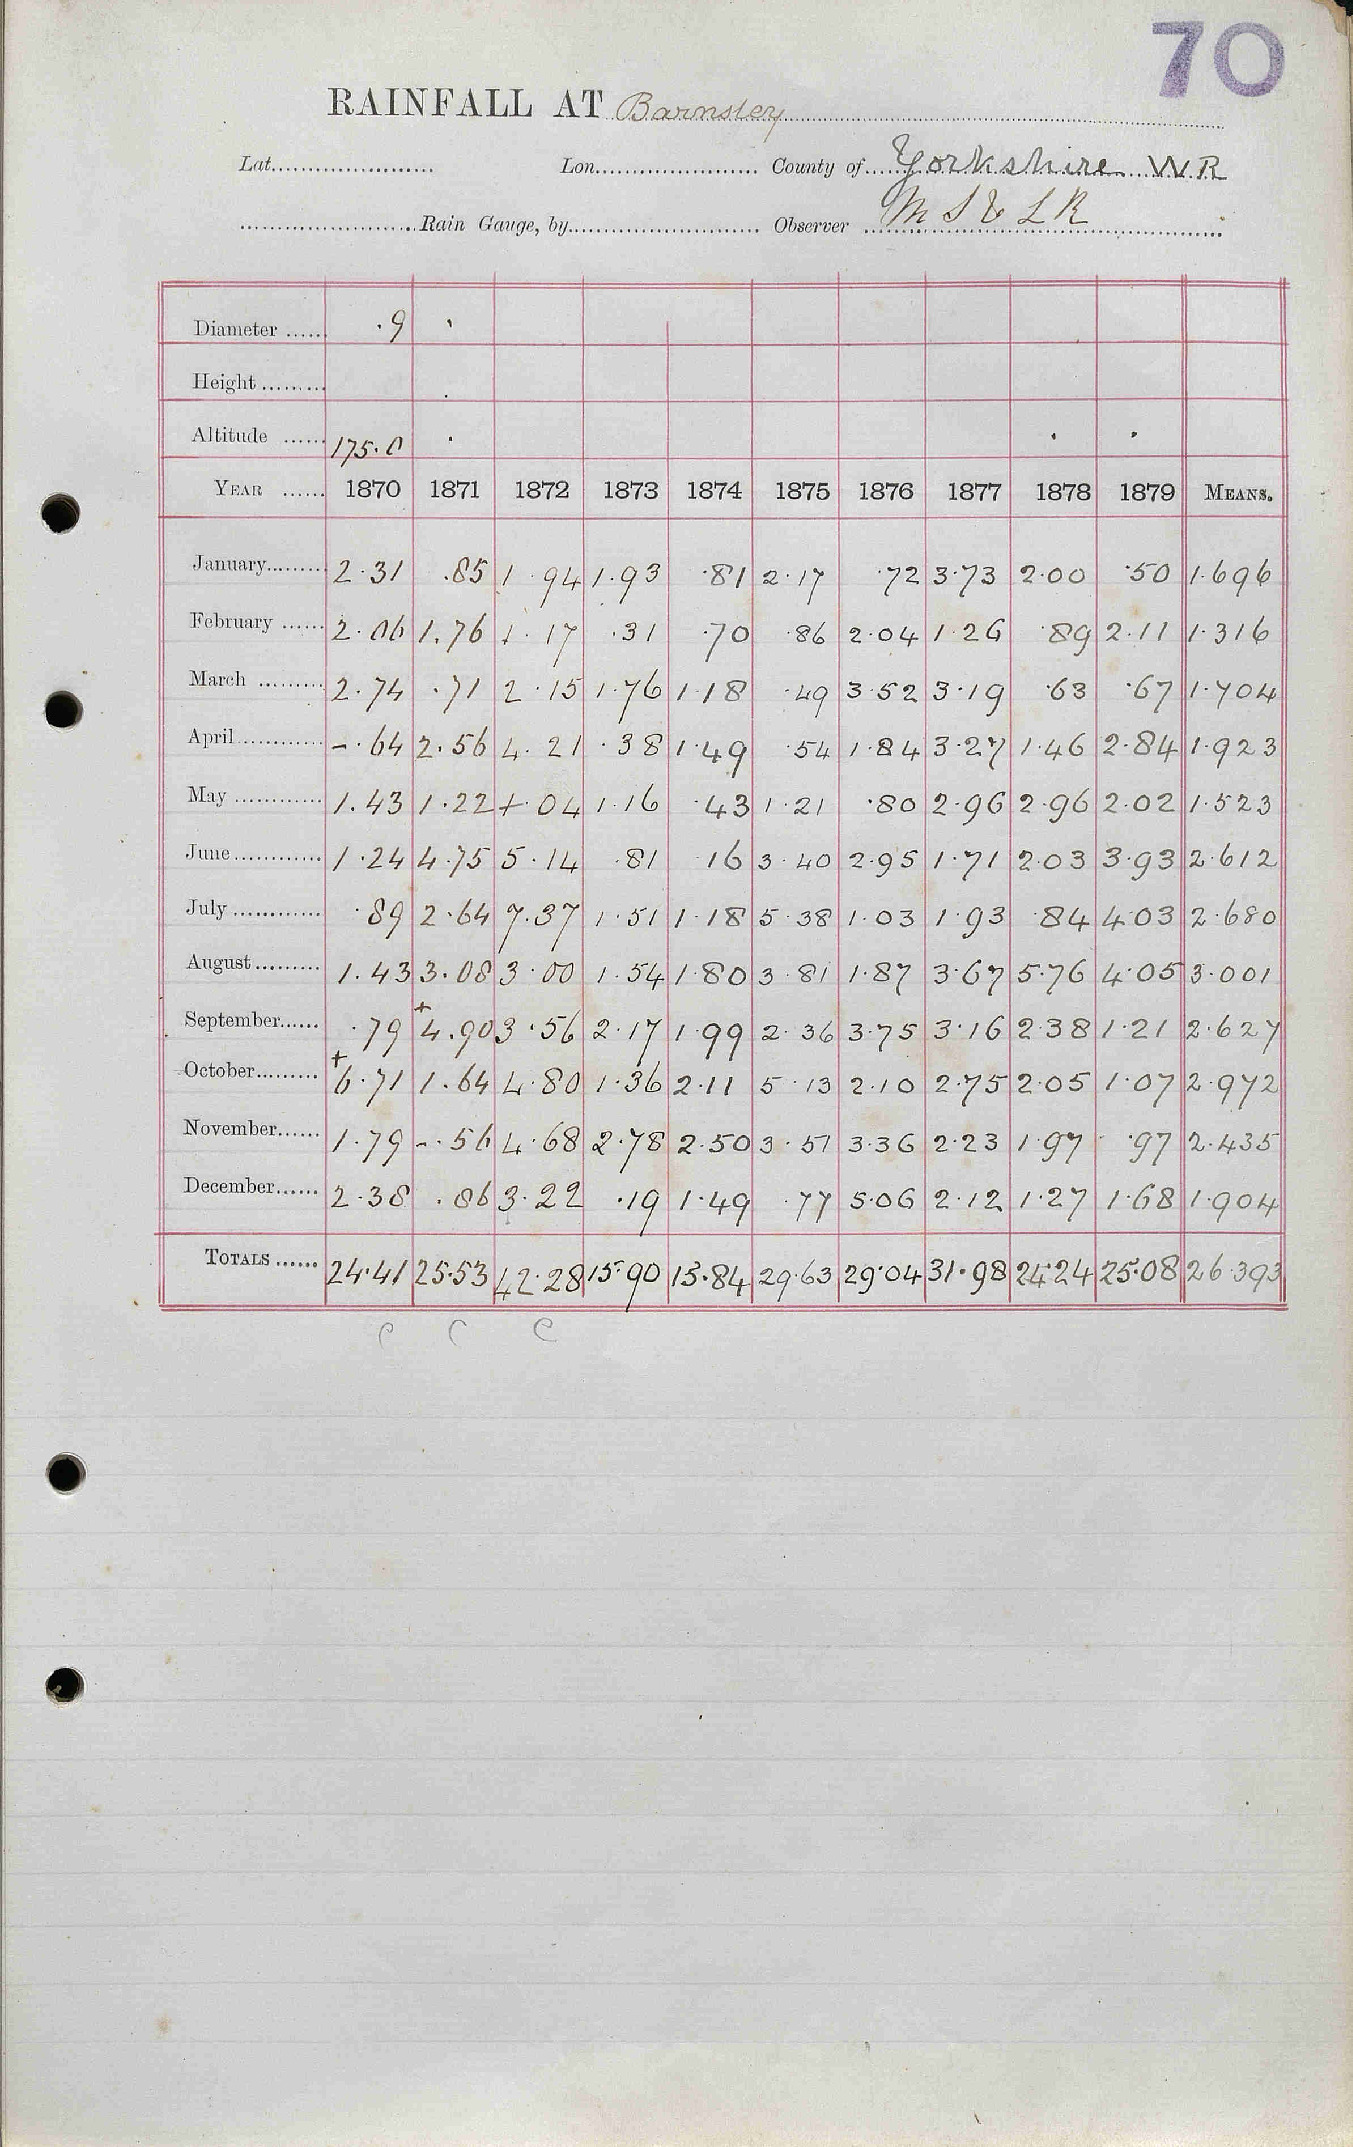 70
RAINFALL AT Barnsley
Lat. Lon. County of Yorkshire W.R
Rain Gauge, by Observer M S & L R
Diameter ...... ·9
Height .........
Altitude ...... 175·0
YEAR ...... 1870 1871 1872 1873 1874 1875 1876 1877 1878 1879 MEANS.
January......... 2·31 .85 1·94 1·93 ·81 2·17 ·72 3·73 2·00 ·50 1·696
February ...... 2·06 1.76 1·17 ·31 ·70 ·86 2·04 1·26 ·89 2·11 1·316
March ......... 2·74 ·71 2·15 1·76 1·18 ·49 3·52 3·19 ·63 ·67 1·704
April............ -·64 2·56 4·21 ·38 1·49 ·54 1·84 3·27 1·46 2·84 1·923
May ............ 1.43 1·22 1·04 1·16 ·43 1·21 ·80 2·96 2·96 2·02 1·523
June............ 1·24 4·75 5·14 ·81 16 3·40 2·95 1·71 2·03 3·93 2·612
July ............ ·89 2·64 7·37 1·51 1·18 5·38 1·03 1·93 ·84 4·03 2·680
August ......... 1.43 3·08 3·00 1·54 1·80 3·81 1·87 3·67 5·76 4·05 3·001
September...... ·79 +4.90 3·56 2·17 1·99 2·36 3·75 3·16 2·38 1·21 2·627
October......... +6·71 1.64 4·80 1·36 2·11 5·13 2·10 2·75 2·05 1·07 2·972
November...... 1·79 -·56 4·68 2·78 2·50 3·51 3·36 2·23 1·97 ·97 2·435
December...... 2·38 .86 3·22 ·19 1·49 ·77 5·06 2·12 1·27 1·68 1·904
TOTALS ...... 24·41 25·53 42·28 15·90 15·84 29·63 29·04 31·98 24·24 25·08 26·393
C C C